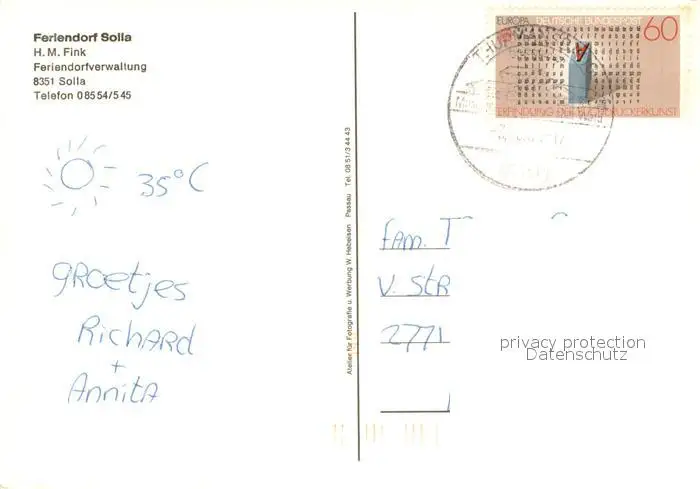 Feriendorf Solla
H. M. Fink
Feriendorfverwaltung
8351 Solla
Telefon 0 85 54/5 45
35°C
GROETJES
RICHARD
+
ANNITA
Atelier für Fotografie u. Werbung W. Hebeisen Passau Tel. 08 51/3 44 43
EUROPA DEUTSCHE BUNDESPOST 60
ERFINDUNG DER BUCHDRUCKERKUNST
FAM. T
V. STR
2771
privacy protection
Datenschutz